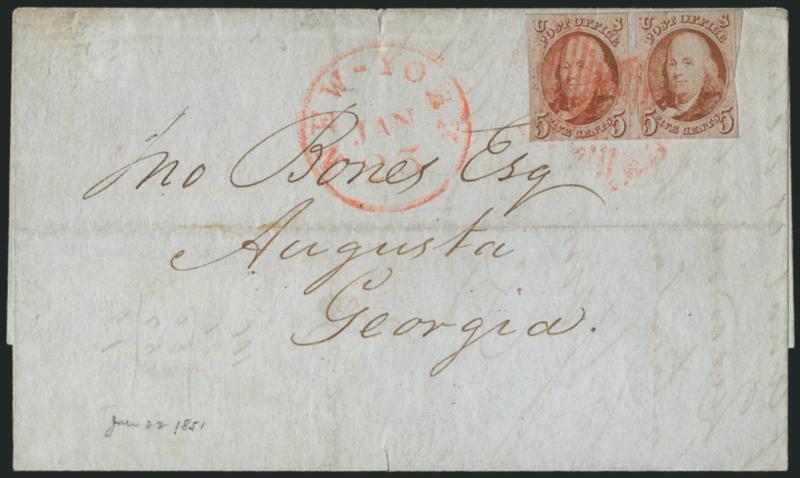 U S
POST OFFICE
5 FIVE CENTS 5
U S
POST OFFICE
5 FIVE CENTS 5
NEW-YORK
JAN
Jno Bones Esq
Augusta
Georgia.
Jan 22 1851